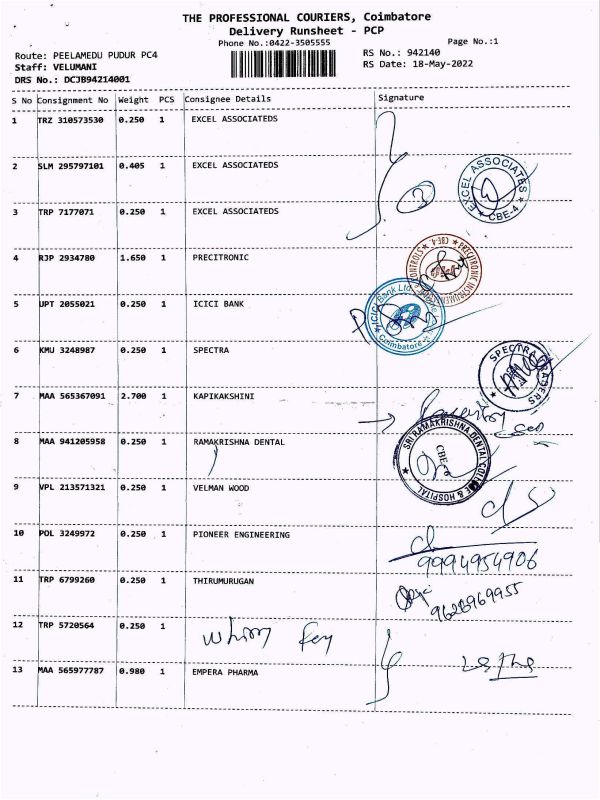 THE PROFESSIONAL COURIERS, Coimbatore
Delivery Runsheet - PCP
Phone No.:0422-3505555
Page No.:1
Route: PEELAMEDU PUDUR PC4
RS No.: 942140
Staff: VELUMANI
RS Date: 18-May-2022
DRS No.: DCJB94214001
S No Consignment No Weight PCS Consignee Details Signature
1 TRZ 310573530 0.250 1 EXCEL ASSOCIATEDS
2 SLM 295797101 0.405 1 EXCEL ASSOCIATEDS
EXCEL ASSOCIATES
CBE-4
3 TRP 7177071 0.250 1 EXCEL ASSOCIATEDS
4 RJP 2934780 1.650 1 PRECITRONIC
5 JPT 2055021 0.250 1 ICICI BANK
ICICI Bank Ltd
Coimbatore
6 KMU 3248987 0.250 1 SPECTRA
SPECTRA
7 MAA 565367091 2.700 1 KAPIKAKSHINI
8 MAA 941205958 0.250 1 RAMAKRISHNA DENTAL
SRI RAMAKRISHNA DENTAL COLLEGE & HOSPITAL
9 VPL 213571321 0.250 1 VELMAN WOOD
10 POL 3249972 0.250 1 PIONEER ENGINEERING
9994954906
11 TRP 6799260 0.250 1 THIRUMURUGAN
9628969955
12 TRP 5720564 0.250 1
13 MAA 565977787 0.980 1 EMPERA PHARMA